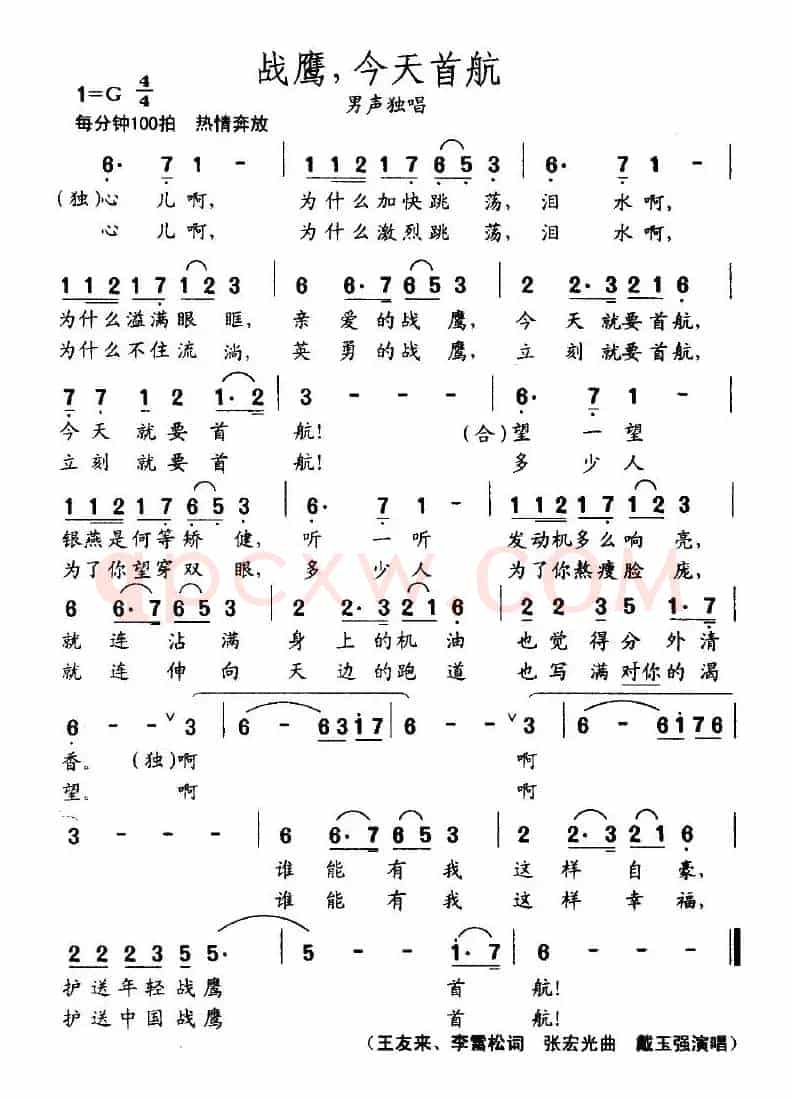 战鹰,今天首航
1=G 4/4
男声独唱
每分钟100拍 热情奔放
6· 7 1 - | 1 1 2 1 7 6 5 3 | 6· 7 1 - |
(独)心 儿 啊, 为什么加快跳 荡, 泪 水 啊,
心 儿 啊, 为什么激烈跳 荡, 泪 水 啊,
1 1 2 1 7 1 2 3 | 6 6· 7 6 5 3 | 2 2· 3 2 1 6 |
为什么溢满眼 眶, 亲 爱的战 鹰, 今 天就要首航,
为什么不住流 淌, 英 勇的战 鹰, 立 刻就要首航,
7 7 1 2 1· 2 | 3 - - - | 6· 7 1 - |
今天 就 要 首 航! (合)望 一 望
立刻 就 要 首 航! 多 少 人
1 1 2 1 7 6 5 3 | 6· 7 1 - | 1 1 2 1 7 1 2 3 |
银燕是何等矫 健, 听 一 听 发动机多么响 亮,
为了你望穿双 眼, 多 少 人 为了你熬瘦脸 庞,
6 6· 7 6 5 3 | 2 2· 3 2 1 6 | 2 2 3 5 1· 7 |
就 连 沾 满 身 上的机 油 也 觉 得 分 外清
就 连 伸 向 天 边的跑 道 也 写 满 对你 的 渴
6 - - ∨ 3 | 6 - - 6 3 1 7 | 6 - - ∨ 3 | 6 - - 6 1 7 6 |
香。 (独)啊 啊
望。 啊 啊
3 - - - | 6 6· 7 6 5 3 | 2 2· 3 2 1 6 |
谁 能 有 我 这 样 自 豪,
谁 能 有 我 这 样 幸 福,
2 2 2 3 5 5· | 5 - - 1· 7 | 6 - - ‖
护送年轻战鹰 首 航!
护送中国战鹰 首 航!
(王友来、李雷松词 张宏光曲 戴玉强演唱)
qpcxw.com